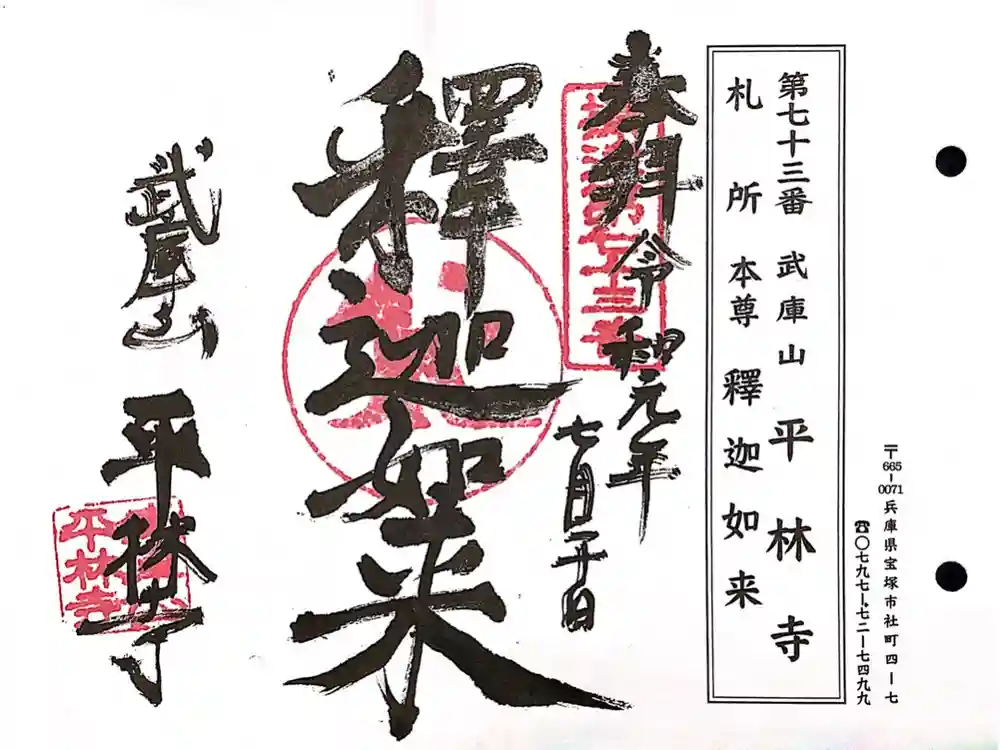 〒665-0071 兵庫県宝塚市社町四ー七
☎〇七九七ー七二ー七四九九
第七十三番 武庫山 平林寺
札所本尊 釋迦如来
奉拜 令和元年
七月二十日
釋迦如来
武庫山 平林寺
平林寺